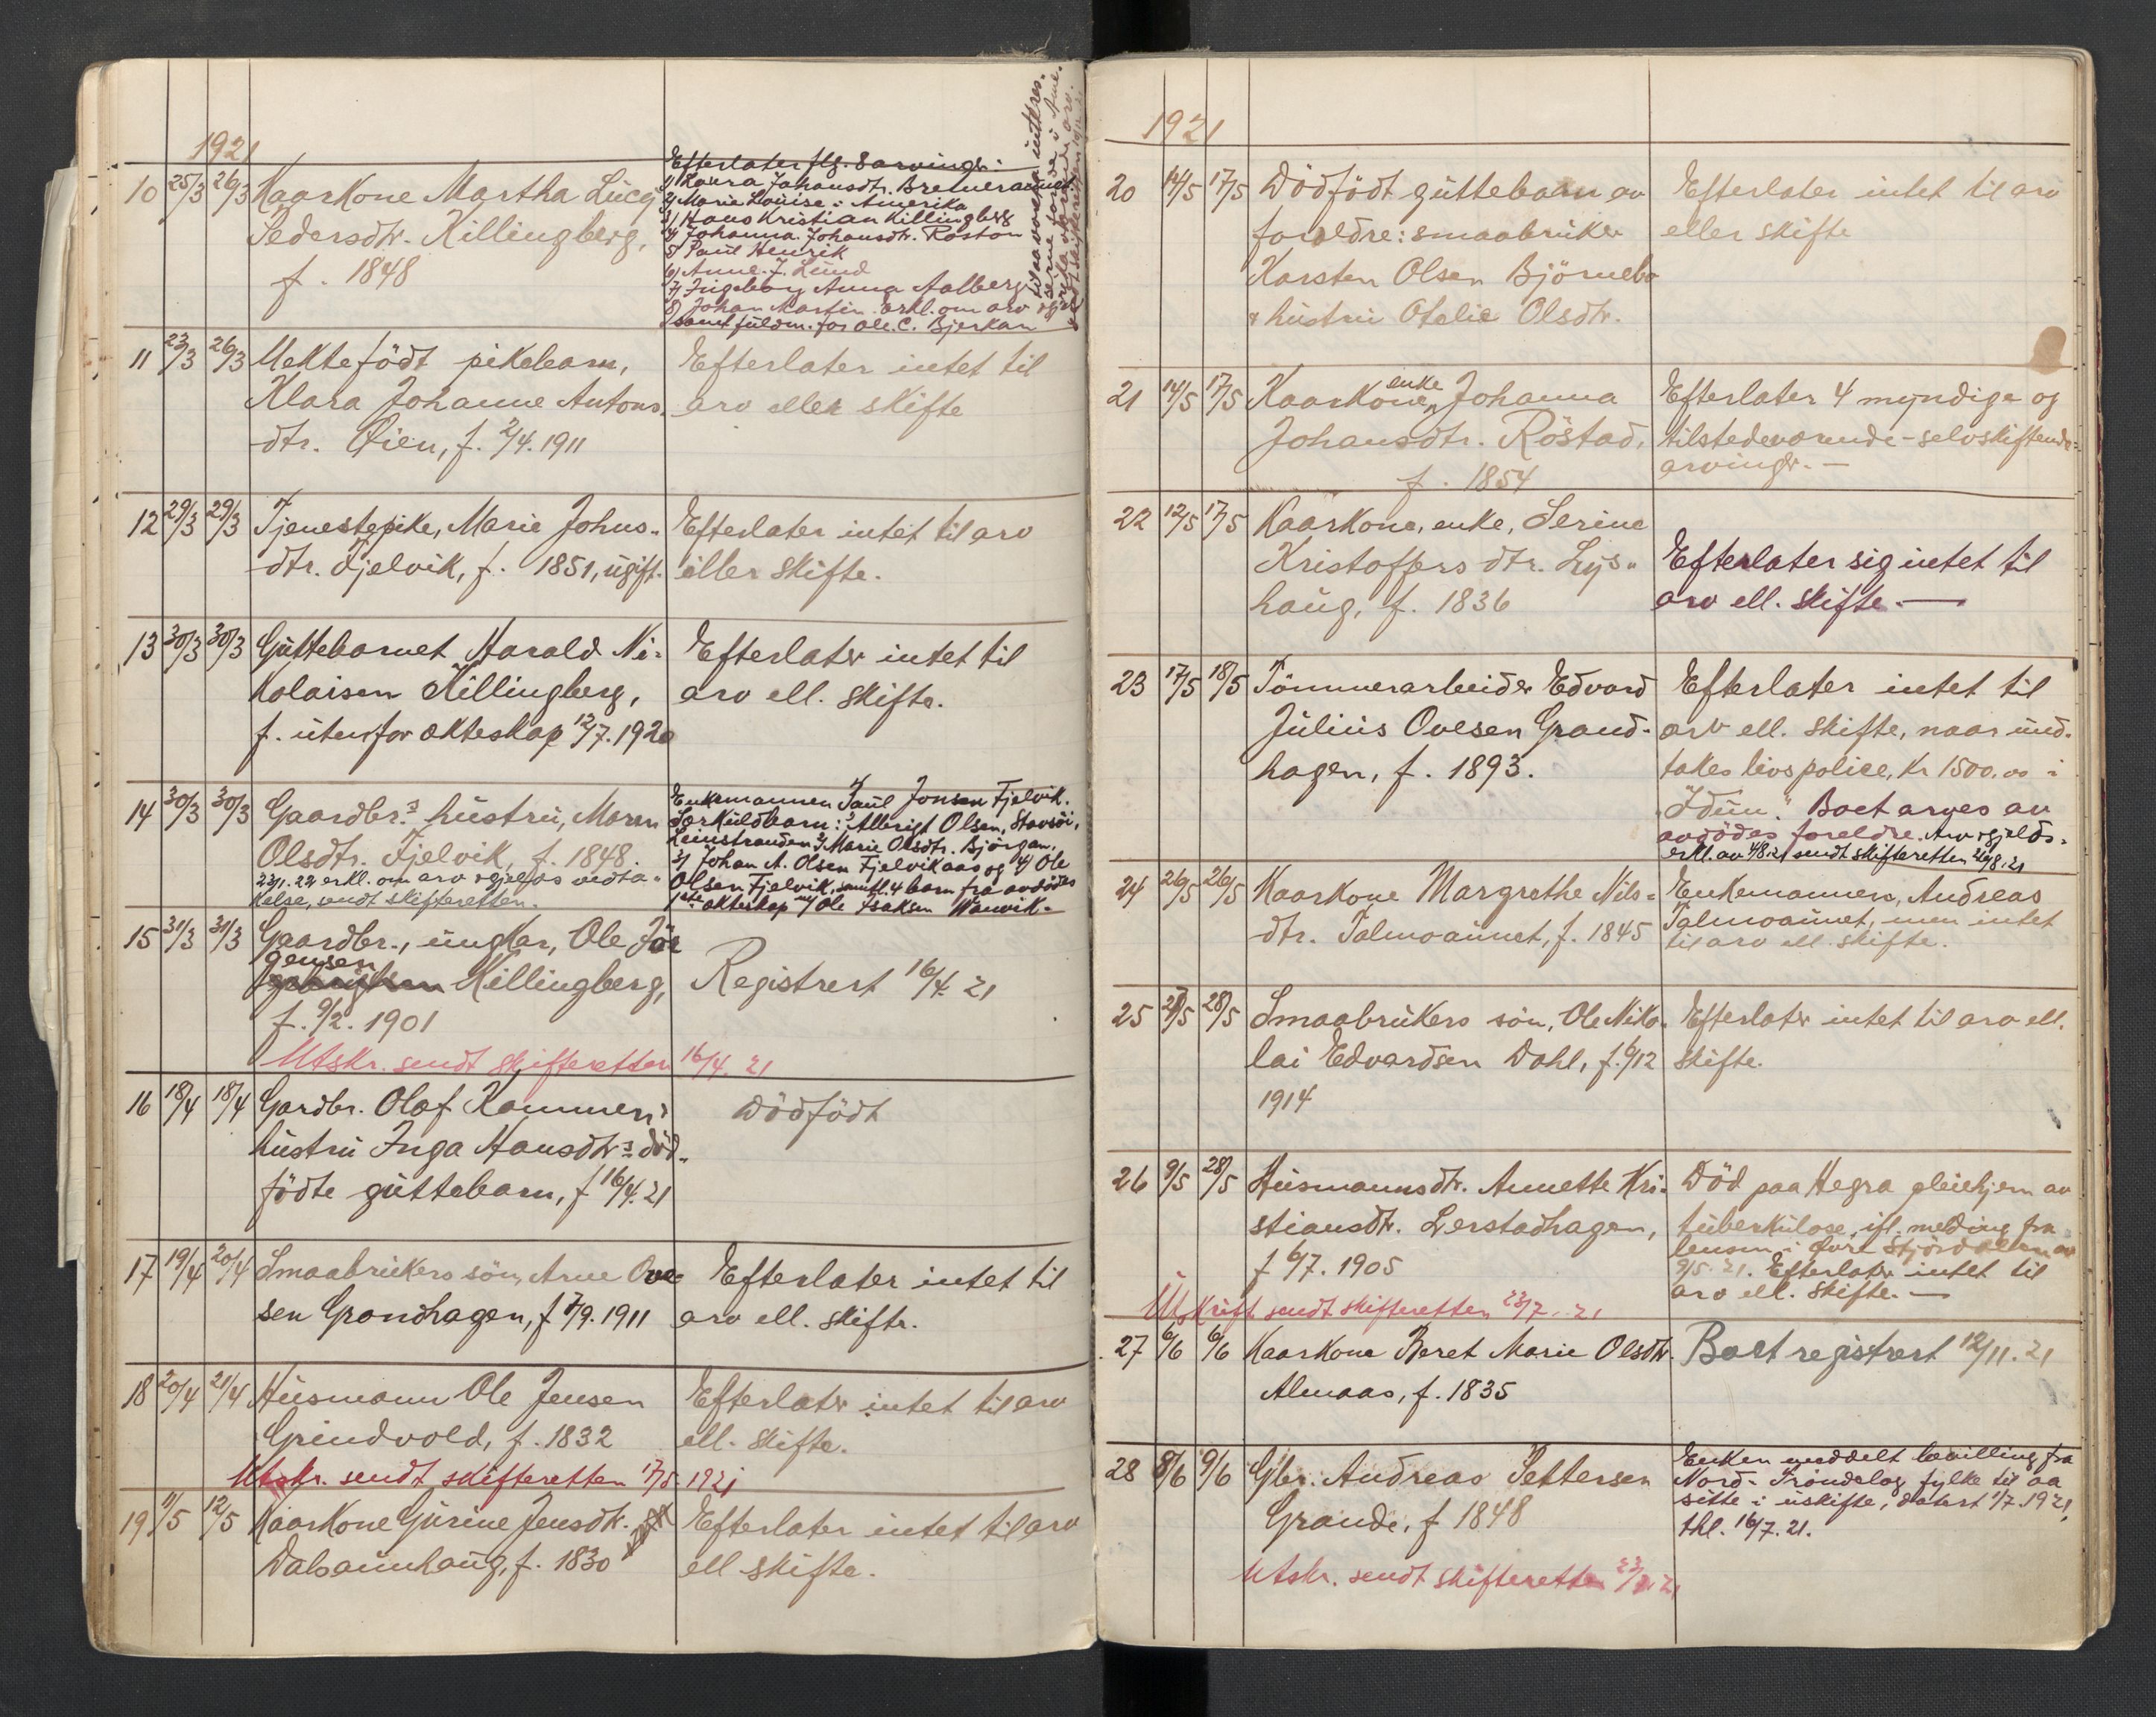 1921
10 25/3 26/3 Kaarkone Martha Lucy
Pedersdtr. Killingberg,
f. 1848
Efterlater flg. 8 arvinger:
1) Laura Johansdtr. Bremeraunet
2) Marie Louise i Amerika
3) Hans Kristian Killingberg
4) Johanna Johansdtr. Roston
5) Paul Henrik
6) Anne J. Lund
7) Ingeborg Anna Aalberg
8) Johan Martin erkl. om arv og
samt fuldm. for Ole C. Bjerkan
11 23/3 26/3 Uektefödt pikebarn,
Klara Johanne Antons-
dtr. Öien, f. 2/4. 1911
Efterlater intet til
arv eller skifte
12 29/3 29/3 Tjenestepike, Marie Johns-
dtr. Fjelvik, f. 1851, ugift.
Efterlater intet til arv
eller skifte.
13 30/3 30/3 Guttebarnet Harald Ni-
kolaisen Killingberg,
f. utenfor ekteskap 12/7. 1920
Efterlater intet til
arv ell. skifte.
14 30/3 30/3 Gaardbr.s hustru, Maren
Olsdtr. Fjelvik, f. 1848.
23/1. 22 erkl. om arv & gjelds vedta-
kelse, sendt skifteretten.
Enkemannen Paul Jonsen Fjelvik.
Særkuldbarn: 1) Albrigt Olsen, Stavsöi,
Leinstranden 2) Marie Olsdtr. Björgan,
3) Johan A. Olsen Fjelvikaas og 4) Ole
Olsen Fjelvik, samtl. 4 barn fra avdödes
1ste ekteskap m/ Ole Isaksen Wanvik.
15 31/3 31/3 Gaardbr., ungkar, Ole Jör
gensen
Killingberg,
f. 9/2. 1901
Registrert 16/4. 21
Utskr. sendt skifteretten 16/4. 21
16 18/4 18/4 Gardbr. Olaf Kammen,
hustru Inga Hansdtr.s död-
födte guttebarn, f 16/4. 21
Dödfödt
17 19/4 20/4 Smaabrukers sön, Arne Ove-
sen Grandhagen, f 7/9. 1911
Efterlater intet til
arv ell. skifte.
18 20/4 21/4 Husmann Ole Jensen
Grindvold, f. 1832
Efterlater intet til arv
ell. skifte.
Utskr. sendt skifteretten 17/5. 1921
19 11/5 12/5 Kaarkone Gurine Jensdtr.
Dalsaunhaug, f. 1830
Efterlater intet til arv
ell skifte.
1921
20 14/5 17/5 Dödfödt guttebarn av
foreldre: smaabruker
Karsten Olsen Björnebo
& hustru Otelie Olsdtr.
Efterlater intet til arv
eller skifte
21 14/5 17/5 Kaarkone, enke Johanna
Johansdtr. Röstad,
f. 1854
Efterlater 4 myndige og
tilstedeværende - selvskiftende
arvinger. —
22 12/5 17/5 Kaarkone, enke, Serine
Kristoffers dtr. Lys-
haug, f. 1836
Efterlater sig intet til
arv ell. skifte. —
23 17/5 18/5 Tömmerarbeider Edvard
Julius Ovesen Grand-
hagen, f. 1893.
Efterlater intet til
arv ell. skifte, naar und-
takes livspolice, kr 1500.00 i
"Idun". Boet arves av
avdödes foreldre. Arv & gjelds-
erkl. av 4/8. 21 sendt skifteretten 26/8. 21
24 26/5 26/5 Kaarkone Margrethe Nils-
dtr. Talmoaunet, f. 1845
Enkemannen, Andreas
Talmoaunet, men intet
til arv ell. skifte.
25 27/5 28/5 Smaabrukers sön, Ole Niko-
lai Edvardsen Dahl, f. 6/12
1914
Efterlater intet til arv ell.
skifte.
26 9/5 28/5 Husmannsdtr. Annette Kri-
stiansdtr. Lerstadhagen,
f 6/7. 1905
Död paa Hegra pleiehjem av
tuberkulose, ifl. melding fra
lensm. i Övre Stjördalen av
9/5. 21. Efterlater intet til
arv ell. skifte. —
Utskrift sendt skifteretten 23/7. 21
27 6/6 6/6 Kaarkone Beret Marie Olsdtr.
Almaas, f. 1835
Boet registrert 12/11. 21
28 8/6 9/6 Gbr. Andreas Pettersen
Grande, f 1848
Enken meddelt bevilling fra
Nord-Tröndelag fylke til aa
sitte i uskifte, datert 1/7 1921,
thl. 16/7. 21.
Utskr. sendt skifteretten 23/7. 21